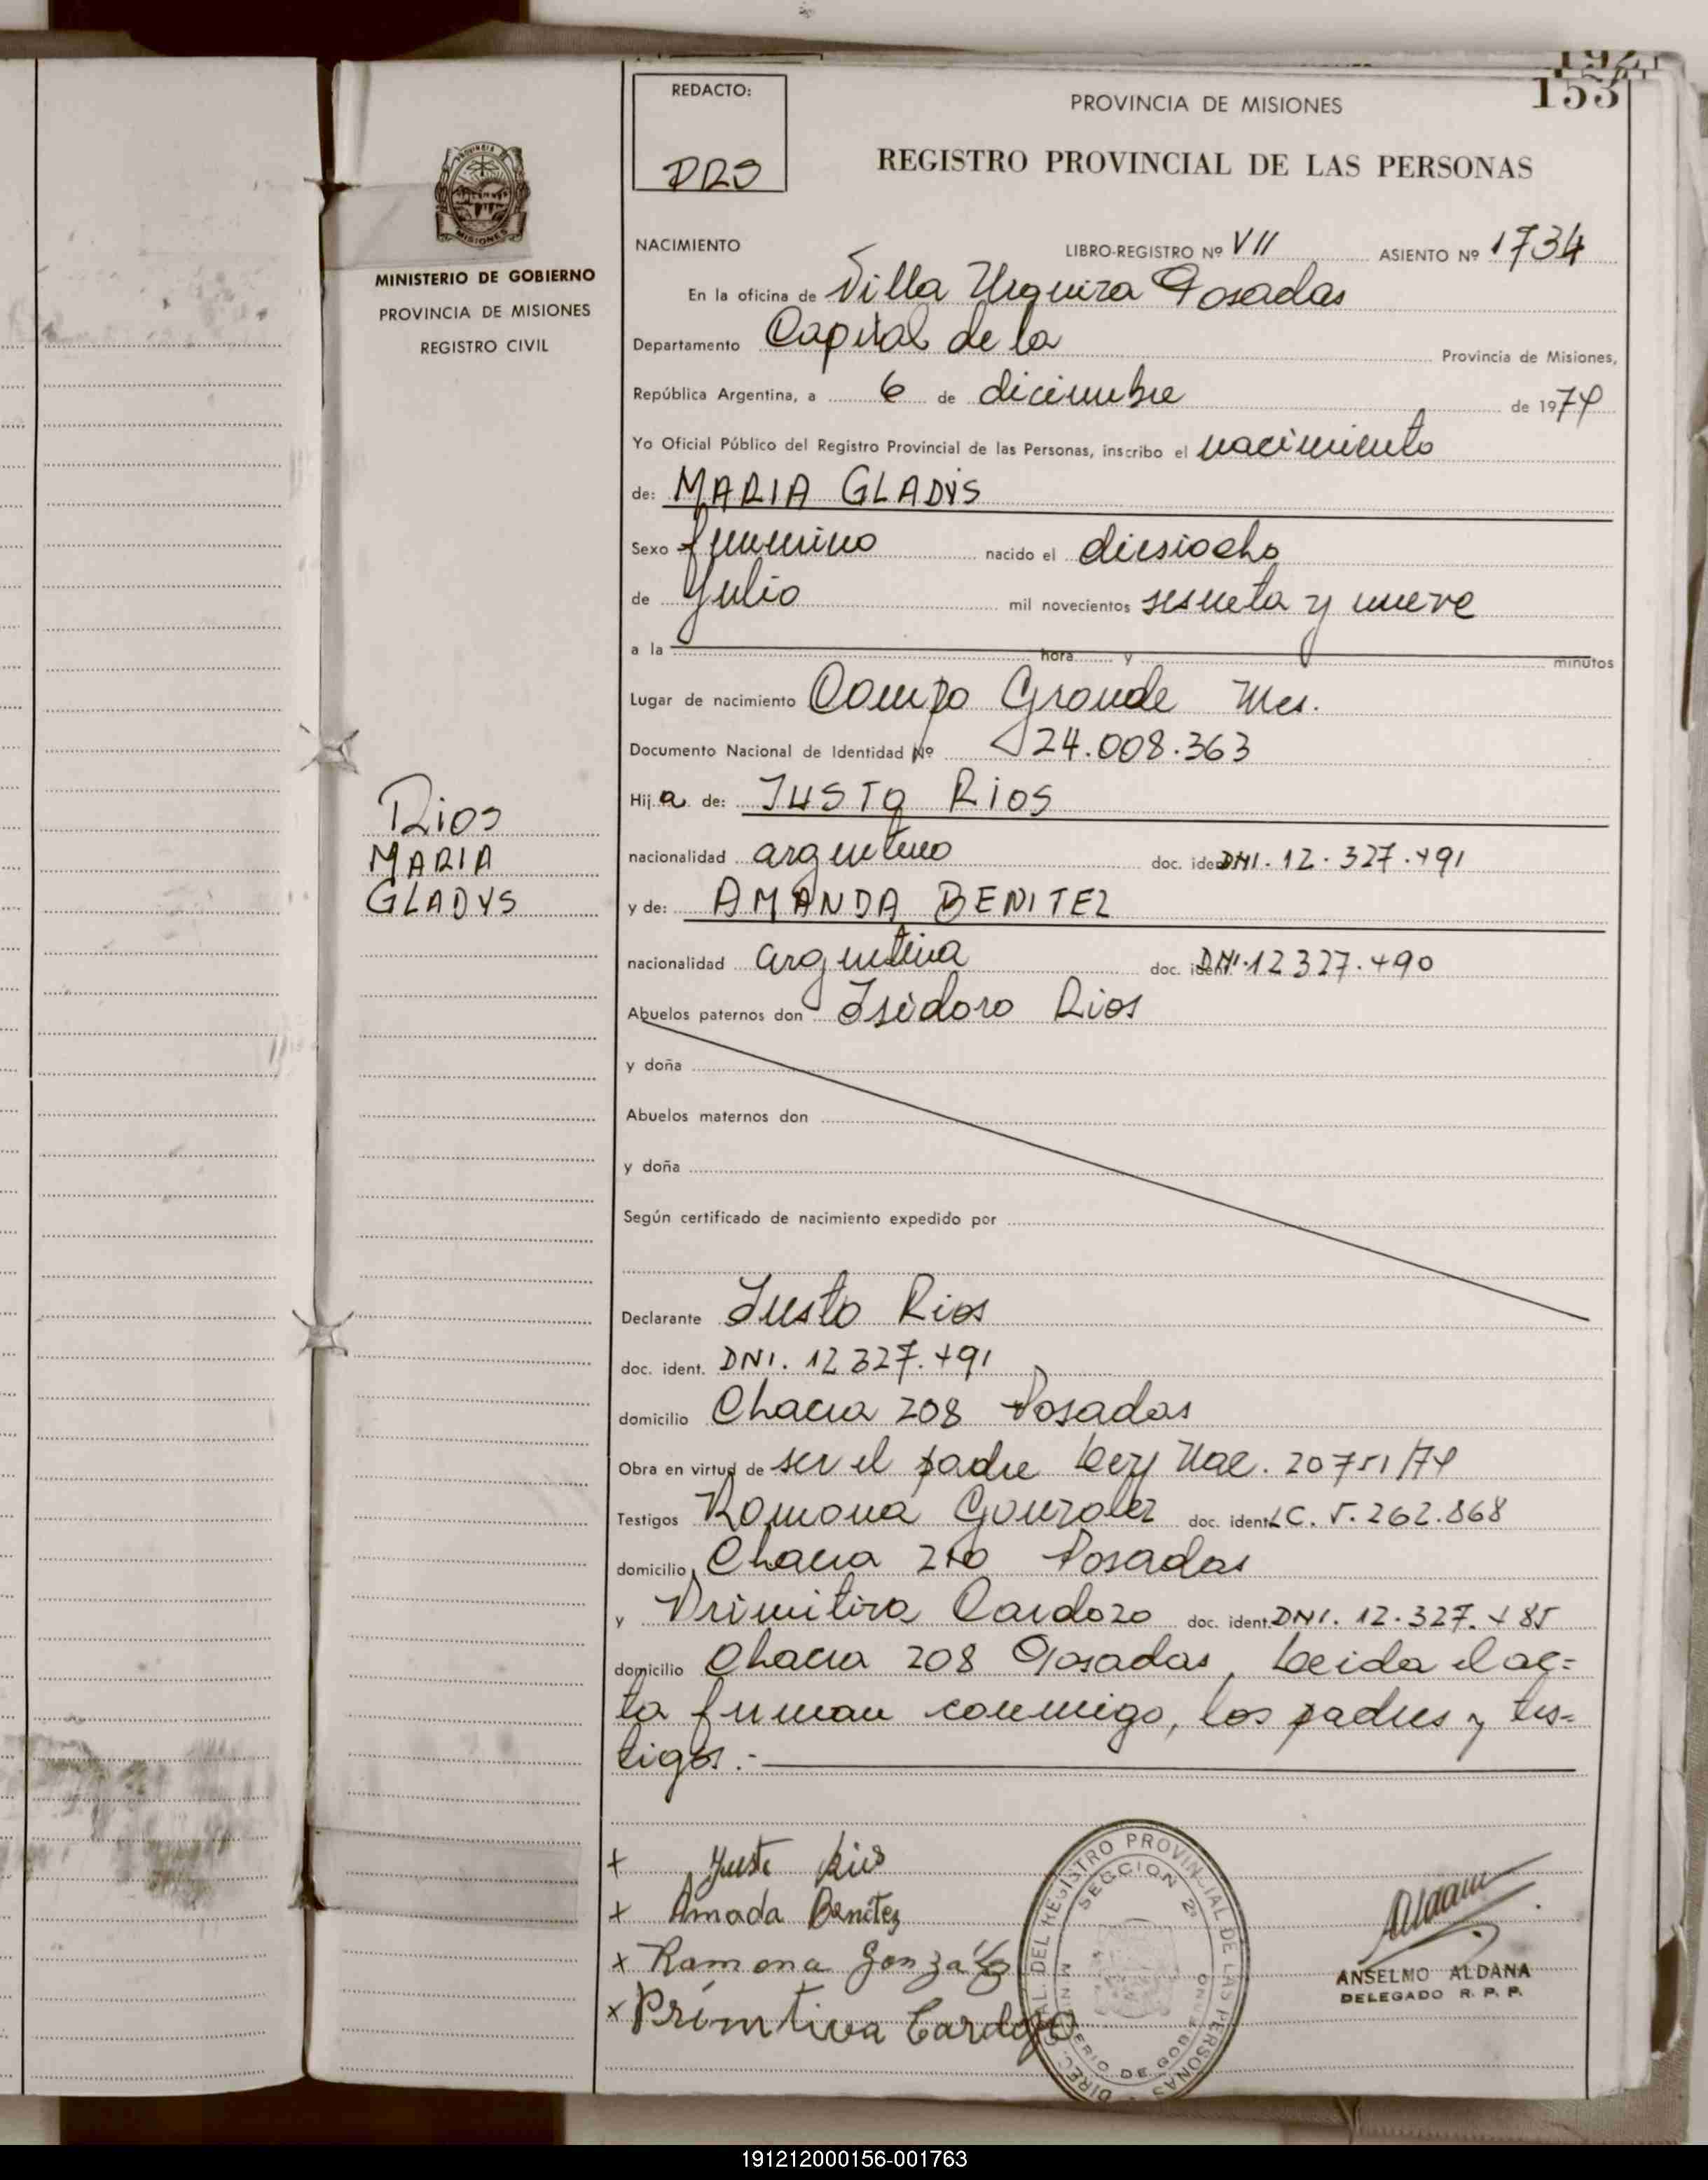 192
153
REDACTO:
DRS
PROVINCIA DE MISIONES
REGISTRO PROVINCIAL DE LAS PERSONAS
PROVINCIA DE MISIONES
MINISTERIO DE GOBIERNO
PROVINCIA DE MISIONES
REGISTRO CIVIL
NACIMIENTO LIBRO-REGISTRO Nº VII ASIENTO Nº 1734
En la oficina de Villa Urquiza Posadas
Departamento Capital de la Provincia de Misiones,
República Argentina, a 6 de diciembre de 1974
Yo Oficial Público del Registro Provincial de las Personas, inscribo el nacimiento
de: MARIA GLADYS
Sexo femenino nacido el diesiocho
de Julio mil novecientos sesenta y nueve
a la hora y minutos
Lugar de nacimiento Campo Grande Mes.
Documento Nacional de Identidad Nº 24.008.363
Hija de: JUSTO RIOS
Rios
MARIA
GLADYS
nacionalidad argentino doc. ident. DNI. 12.327.491
y de: AMANDA BENITEZ
nacionalidad argentina doc. ident. DNI. 12327.490
Abuelos paternos don Isidoro Rios
y doña
Abuelos maternos don
y doña
Según certificado de nacimiento expedido por
Declarante Justo Rios
doc. ident. DNI. 12327.491
domicilio Chacra 208 Posadas
Obra en virtud de ser el padre Ley Nac. 20751/74
Testigos Ramona Gonzalez doc. ident. LC. 5.262.868
domicilio Chacra 210 Posadas
y Primitiva Cardozo doc. ident. DNI. 12.327.485
domicilio Chacra 208 Posadas, Leida el ac=
ta firman conmigo, los padres y tes=
tigos.-
x Justo Rios
x Amada Benitez
x Ramona González
x Primtiva Cardozo
DIREC. GRAL. DEL REGISTRO PROVINCIAL DE LAS PERSONAS
SECCION 2ª
MINISTERIO DE GOBIERNO
Aldana
ANSELMO ALDANA
DELEGADO R. P. P.
191212000156-001763